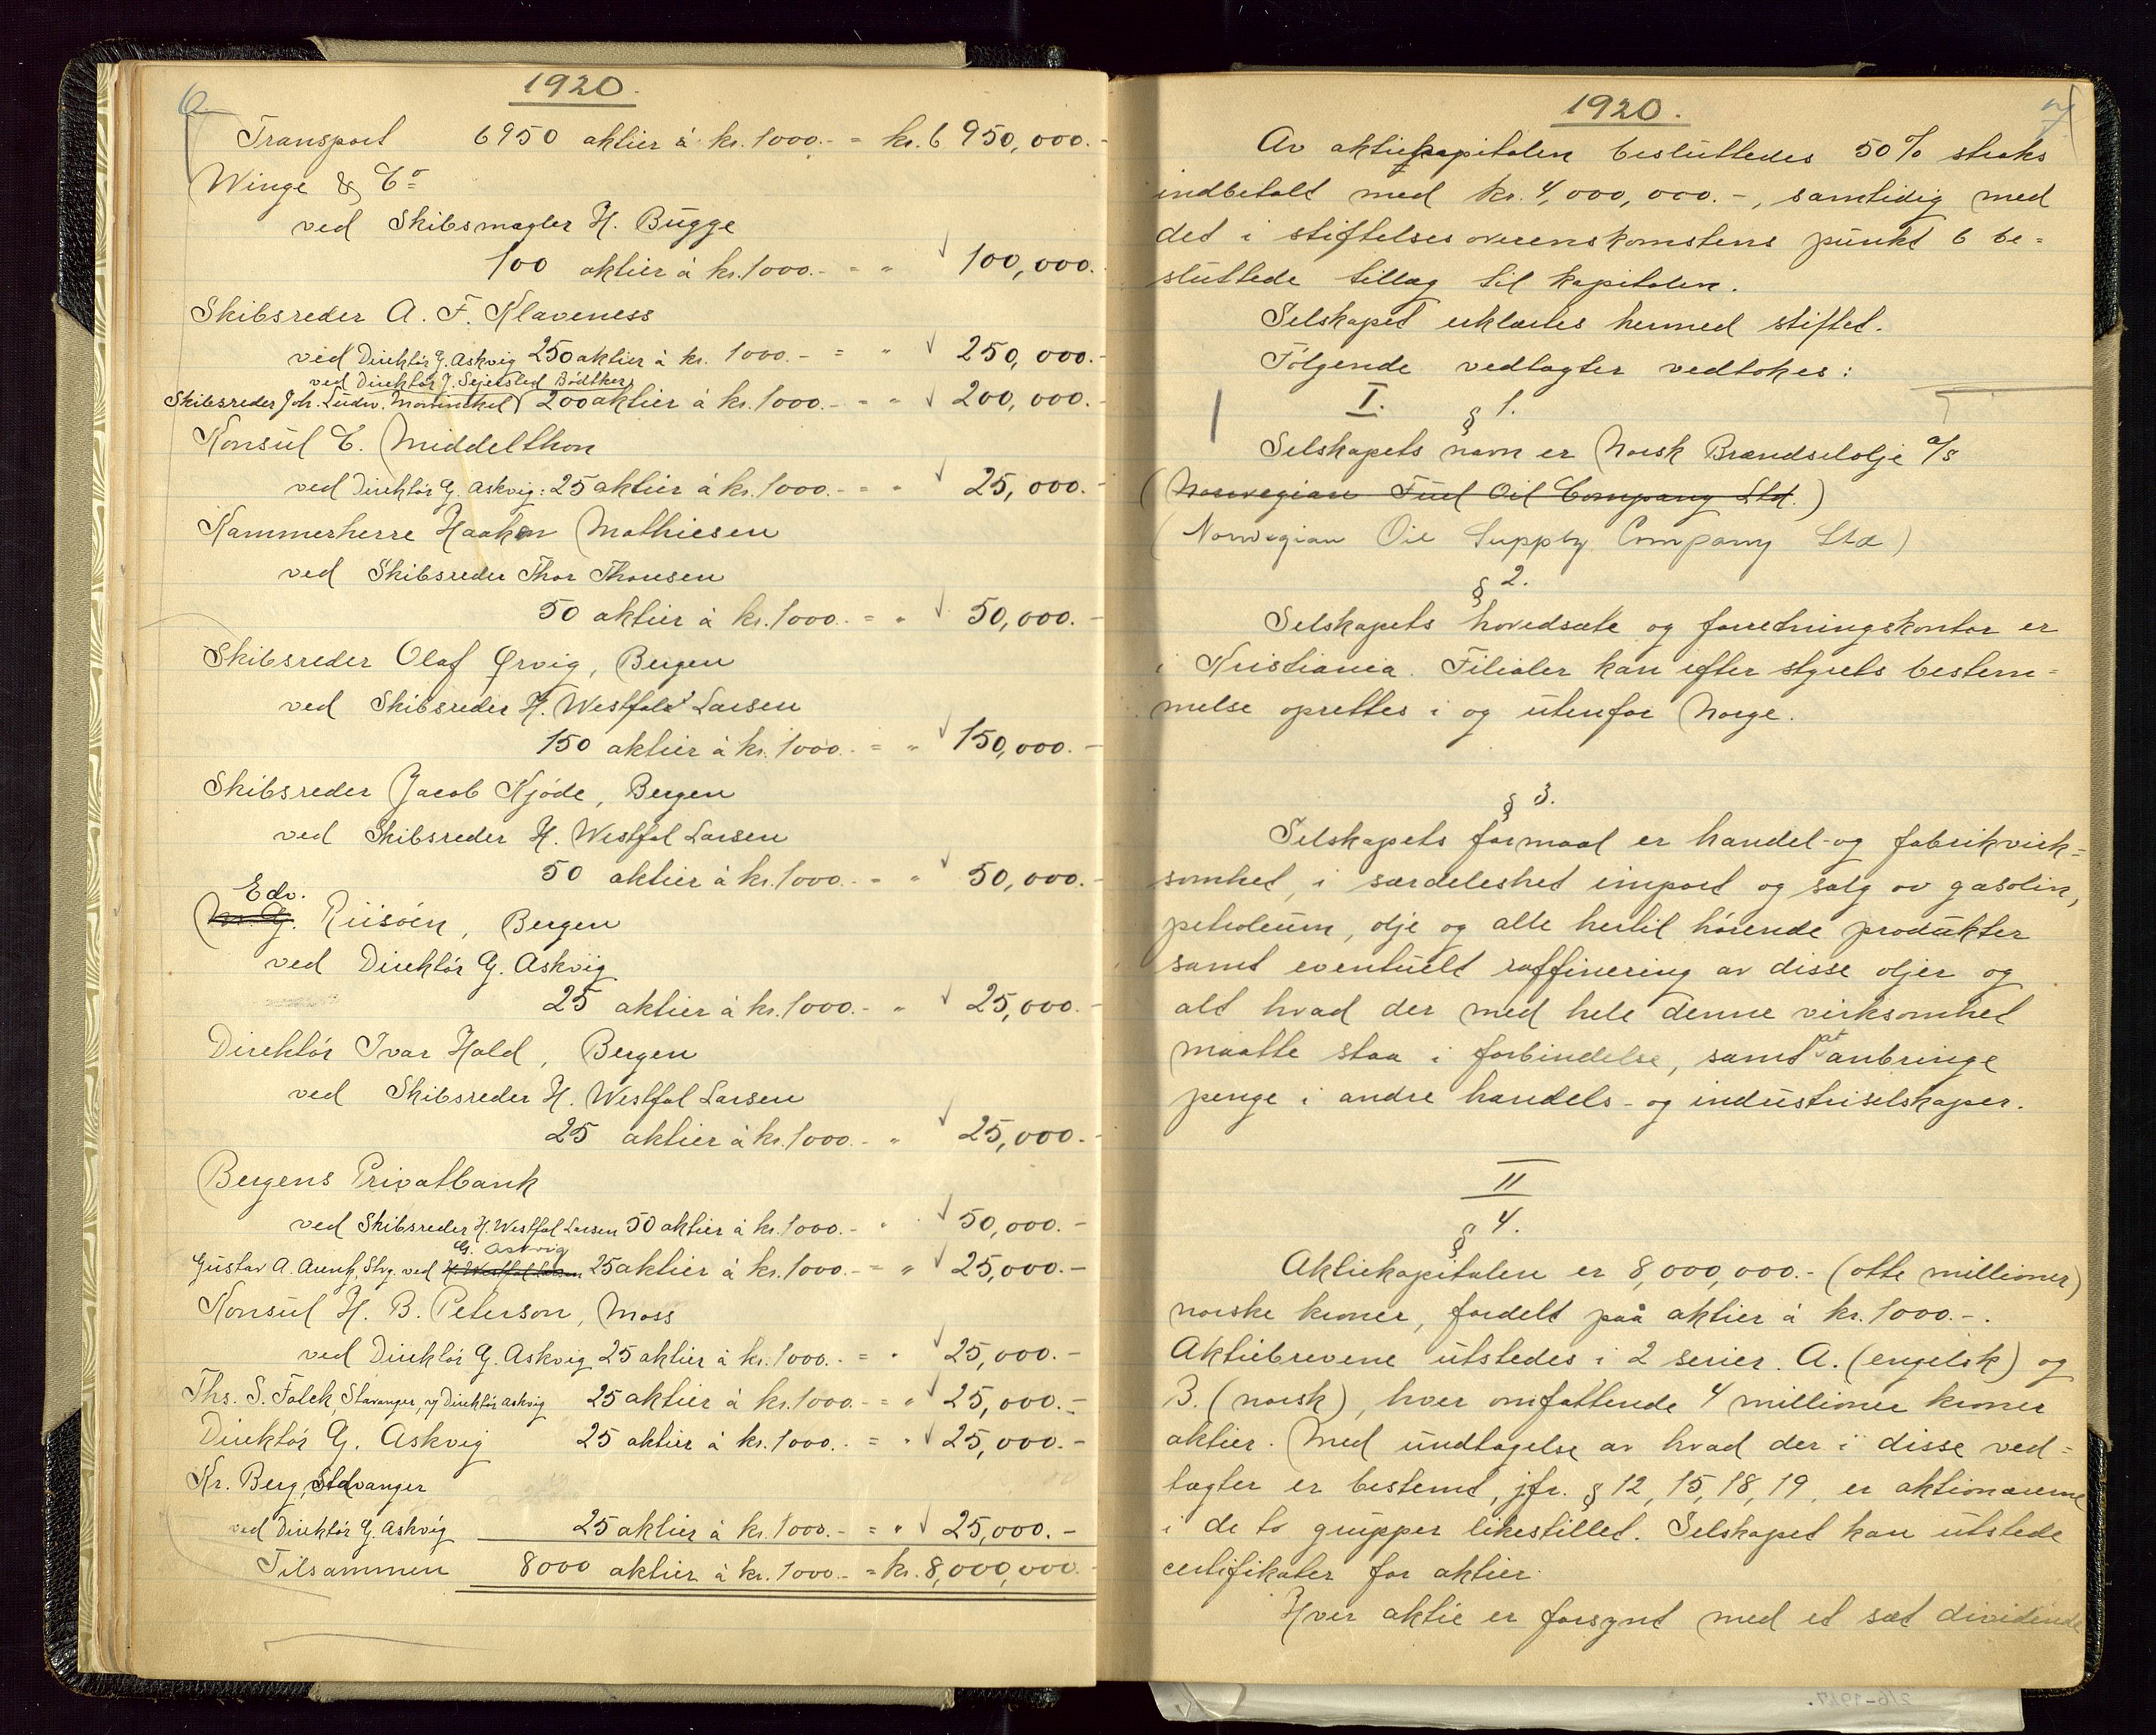 6
1920.
Transport 6950 aktier à kr. 1000.- = kr. 6 950,000.-
Winge & Co
ved Skibsmægler H. Bugge
100 aktier à kr. 1000.- = " √ 100,000.
Skibsreder A. F. Klaveness
ved Direktör G. Askvig 250 aktier à kr. 1000.- = " √ 250,000.-
ved Direktör J. Sejersted Bödtker
Skibsreder Joh. Ludw. Mowinckel 200 aktier à kr. 1000.- = " √ 200,000.-
Konsul C. Middelthon
ved Direktör G. Askvig: 25 aktier à kr. 1000.- = " √ 25,000.-
Kammerherre Haaken Mathiesen
ved Skibsreder Thor Thoresen
50 aktier à kr. 1000.- = " √ 50,000.-
Skibsreder Olaf Ørvig, Bergen
ved Skibsreder H. Westfal Larsen
150 aktier à kr. 1000.- = " √ 150,000.-
Skibsreder Jacob Kjöde, Bergen
ved Skibsreder H. Westfal Larsen
50 aktier à kr. 1000.- = " √ 50,000.-
Edv.
M. G. Riisöen, Bergen
ved Direktör G. Askvig
25 aktier à kr. 1000.- " √ 25,000.-
Direktör Ivar Hald, Bergen
ved Skibsreder H. Westfal Larsen
25 aktier à kr. 1000.- " √ 25,000.-
Bergens Privatbank
ved Skibsreder H. Westfal Larsen 50 aktier à kr. 1000.- " √ 50,000.-
G. Askvig
Gustav A. Arentz, Stvg. ved H. Westfal Larsen 25 aktier à kr. 1000.- = " √ 25,000.-
Konsul H. B. Peterson, Moss
ved Direktör G. Askvig 25 aktier à kr. 1000.- = " √ 25,000.-
Ths. S. Falck, Stavanger, v/ Direktör Askvig 25 aktier à kr. 1000.- = " √ 25,000.-
Direktör G. Askvig 25 aktier à kr. 1000.- = " √ 25,000.-
Kr. Berg, Stavanger
ved Direktör G. Askvig 25 aktier à kr. 1000.- = " √ 25,000.-
Tilsammen 8000 aktier à kr. 1000.- = kr. 8,000,000.-
7
1920.
Av aktiekapitalen besluttedes 50% straks
indbetalt med kr. 4,000,000.-, samtidig med
det i stiftelsesoverenskomstens punkt 6 be=
sluttede tillæg til kapitalen.
Selskapet erklærtes hermed stiftet.
Fölgende vedtægter vedtokes:
I. § 1.
Selskapets navn er Norsk Brændselolje a/s
(Norwegian Fuel Oil Company Ltd.)
(Norwegian Oil Supply Company Ltd)
§ 2.
Selskapets hovedsæte og forretningskontor er
i Kristiania. Filialer kan efter styrets bestem=
melse oprettes i og utenfor Norge.
§ 3.
Selskapets formaal er handel- og fabrikvirk=
somhet, i særdeleshet import og salg av gasolin,
petroleum, olje og alle hertil hörende produkter
samt eventuelt raffinering av disse oljer og
alt hvad der med hele denne virksomhet
maatte staa i forbindelse, samt at anbringe
penge i andre handels- og industriselskaper.
II
§ 4.
Aktiekapitalen er 8,000,000.- (otte millioner)
norske kroner, fordelt paa aktier à kr. 1000.-.
Aktiebrevene utstedes i 2 serier. A. (engelsk) og
B. (norsk), hver omfattende 4 millioner kroner
aktier. Med undtagelse av hvad der i disse ved=
tægter er bestemt, jfr. § 12, 15, 18, 19, er aktionærerne
i de to grupper likestillet. Selskapet kan utstede
certifikater for aktier.
Hver aktie er forsynt med et sæt dividende
2/6-1927.